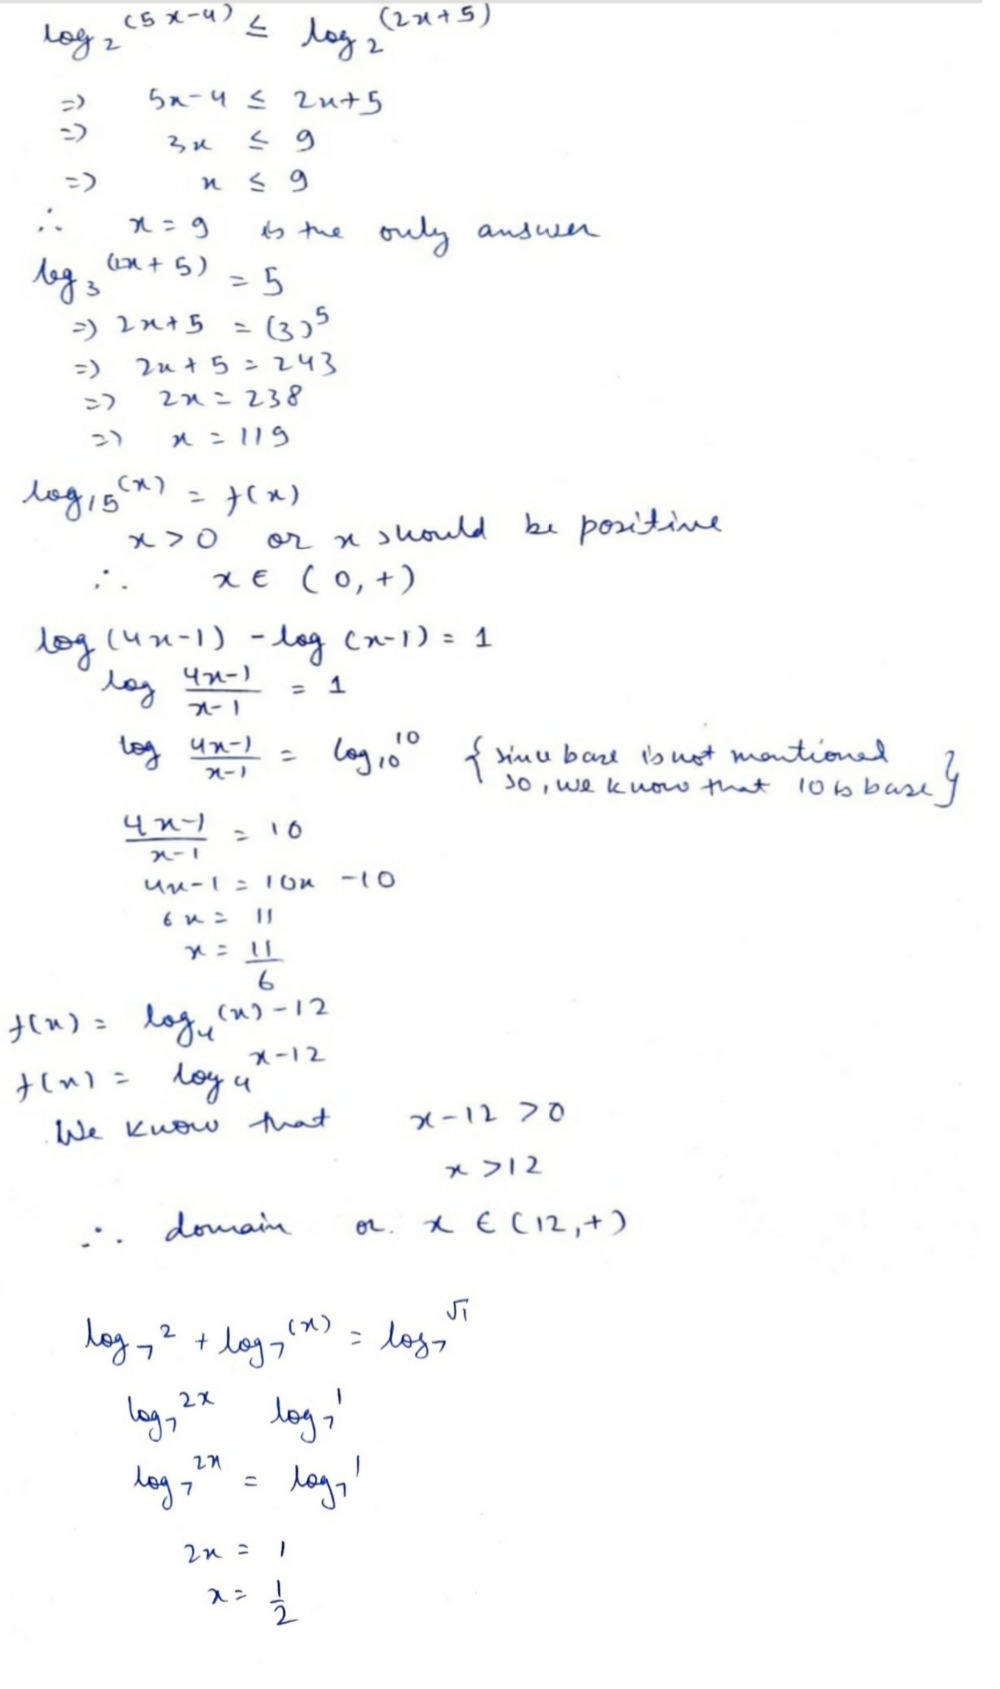 log₂^(5x-4) ≤ log₂^(2x+5)
=> 5x-4 ≤ 2x+5
=> 3x ≤ 9
=> x ≤ 9
∴ x = 9 is the only answer
log₃^(2x+5) = 5
=> 2x+5 = (3)⁵
=> 2x+5 = 243
=> 2x = 238
=> x = 119
log₁₅^(x) = f(x)
x > 0 or x should be positive
∴ x ∈ (0,+)
log (4x-1) - log (x-1) = 1
log (4x-1)/(x-1) = 1
log (4x-1)/(x-1) = log₁₀^10 {since base is not mentioned
so, we know that 10 is base}
(4x-1)/(x-1) = 10
4x-1 = 10x -10
6x = 11
x = 11/6
f(x) = log₄^(x)-12
f(x) = log₄^x-12
We know that x-12 >0
x >12
∴ domain or x ∈ (12,+)
log₇^2 + log₇^(x) = log₇^√1
log₇^2x log₇^1
log₇^2x = log₇^1
2x = 1
x = 1/2